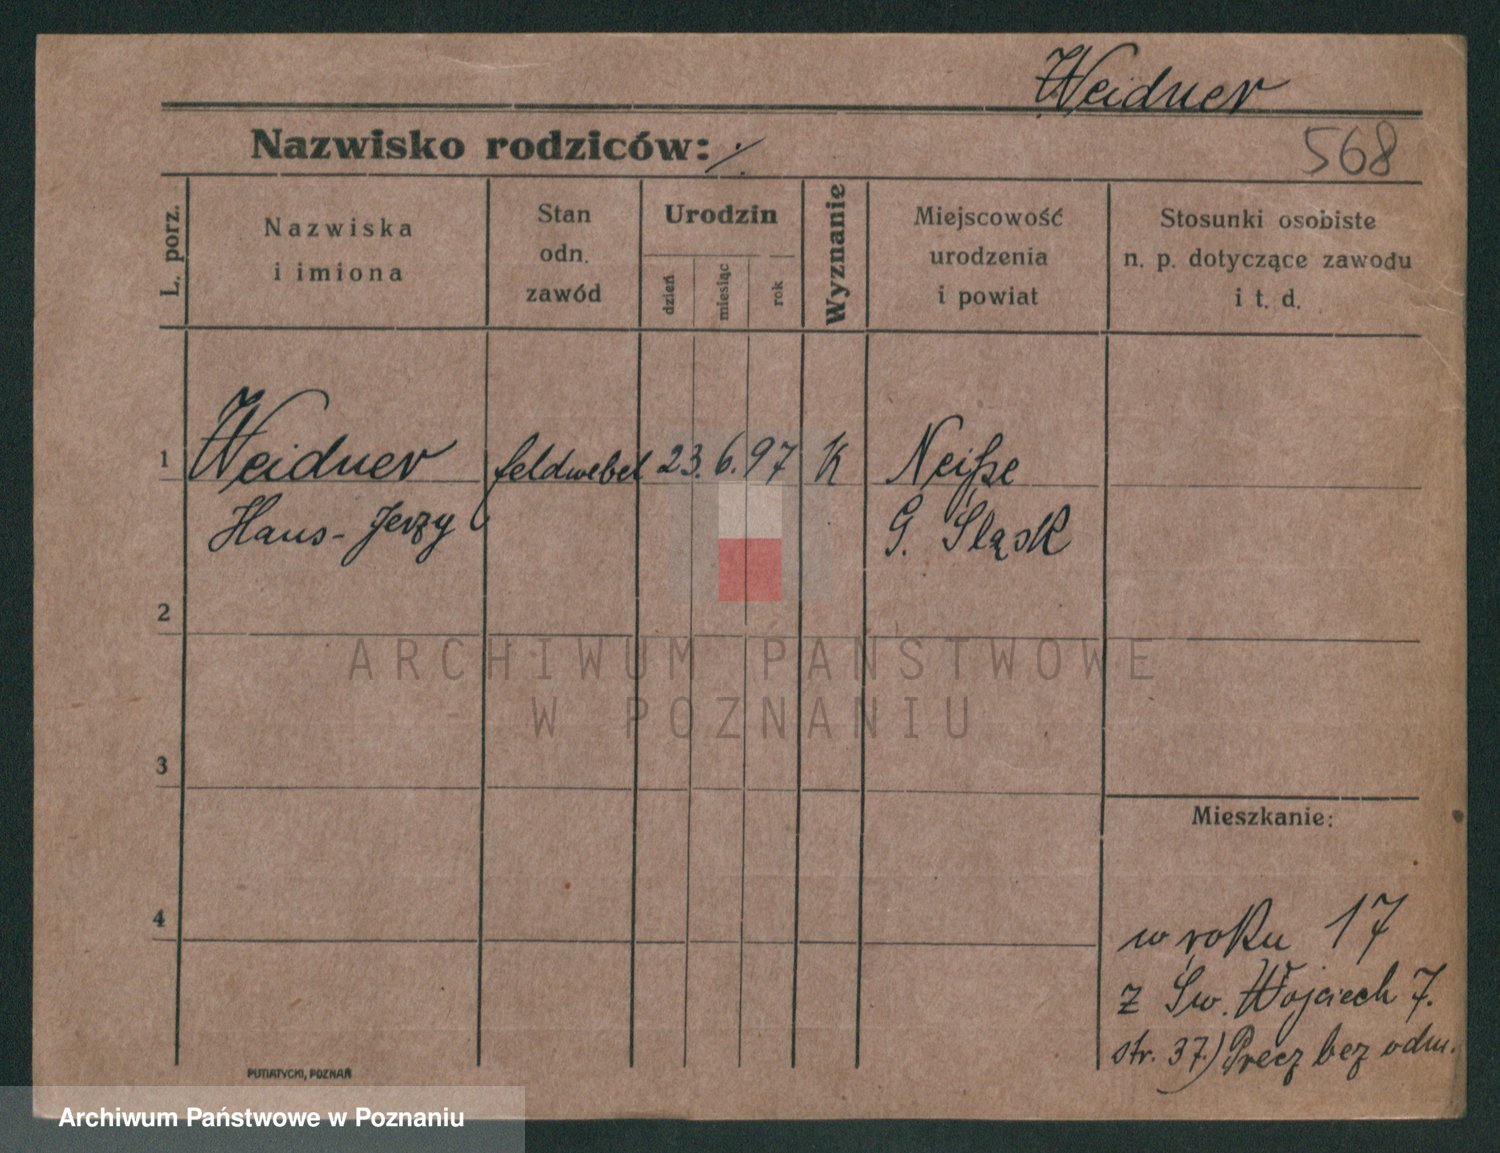 Weidner
Nazwisko rodziców: ⁒
568
L. porz.
Nazwiska
i imiona
Stan
odn.
zawód
Urodzin
dzień
miesiąc
rok
Wyznanie
Miejscowość
urodzenia
i powiat
Stosunki osobiste
n. p. dotyczące zawodu
i t. d.
1 Weidner feldwebel 23. 6. 97 K Neiße
Hans-Jerzy G. Śląsk
2
ARCHIWUM PAŃSTWOWE
W POZNANIU
3
Mieszkanie:
4
w roku 17
z Św. Wojciech 7.
str. 37.) Precz bez odm.
PUTIATYCKI, POZNAŃ
Archiwum Państwowe w Poznaniu